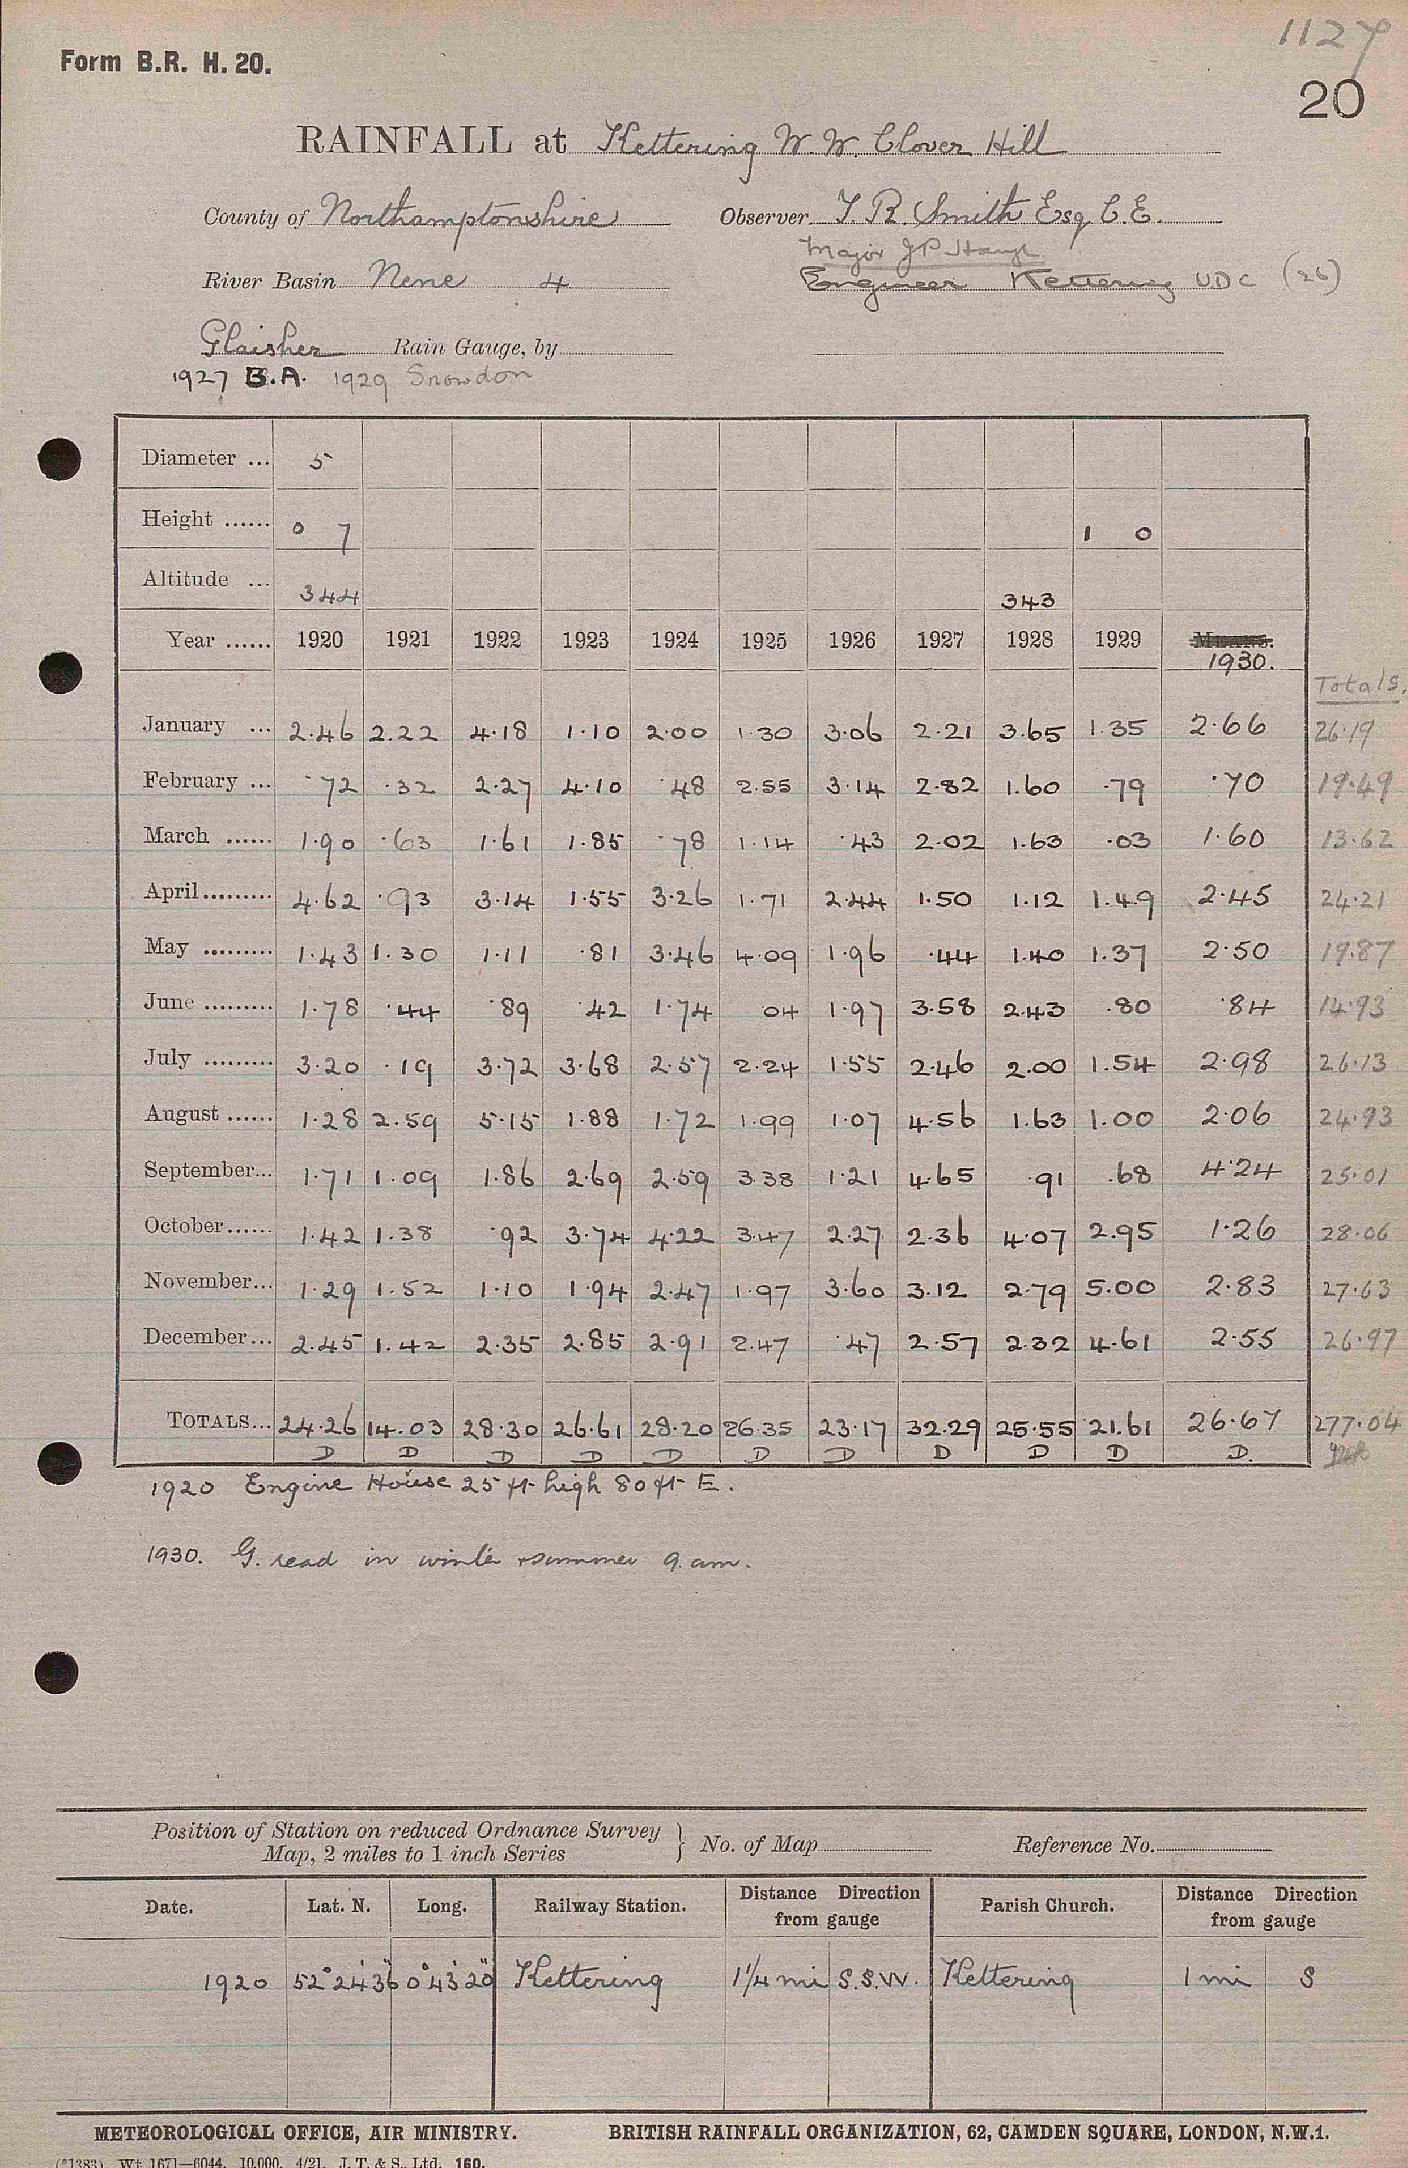 1127
Form B.R. H. 20.
20
RAINFALL at Kettering W.W. Clover Hill
County of Northamptonshire Observer T. R. Smith Esq C.E.
Major J P
River Basin Nene 4 Engineer Kettering UDC (26)
Glaisher Rain Gauge, by
1927 B.A. 1929 Snowdon
Diameter ... 5
Height ...... 0 7 1 0
Altitude ... 344 343
Year ...... 1920 1921 1922 1923 1924 1925 1926 1927 1928 1929 MEANS.
1930.
Totals.
January ... 2.46 2.22 4.18 1.10 2.00 1.30 3.06 2.21 3.65 1.35 2.66 26.19
February ... .72 .32 2.27 4.10 .48 2.55 3.14 2.82 1.60 .79 .70 19.49
March ...... 1.90 .63 1.61 1.85 .78 1.14 .43 2.02 1.63 .03 1.60 13.62
April......... 4.62 .93 3.14 1.55 3.26 1.71 2.44 1.50 1.12 1.49 2.45 24.21
May ......... 1.43 1.30 1.11 .81 3.46 4.09 1.96 .44 1.40 1.37 2.50 19.87
June ......... 1.78 .44 .89 .42 1.74 04 1.97 3.58 2.43 .80 .84 14.93
July ......... 3.20 .19 3.72 3.68 2.57 2.24 1.55 2.46 2.00 1.54 2.98 26.13
August ...... 1.28 2.59 5.15 1.88 1.72 1.99 1.07 4.56 1.63 1.00 2.06 24.93
September... 1.71 1.09 1.86 2.69 2.59 3.38 1.21 4.65 .91 .68 4.24 25.01
October...... 1.42 1.38 .92 3.74 4.22 3.47 2.27 2.36 4.07 2.95 1.26 28.06
November... 1.29 1.52 1.10 1.94 2.47 1.97 3.60 3.12 2.79 5.00 2.83 27.63
December... 2.45 1.42 2.35 2.85 2.91 2.47 .47 2.57 2.32 4.61 2.55 26.97
TOTALS... 24.26 14.03 28.30 26.61 28.20 26.35 23.17 32.29 25.55 21.61 26.67 277.04
D D D D D D D D D D D.
1920 Engine House 25 ft high 80 ft E.
1930. G. read in winter & summer 9. am.
Position of Station on reduced Ordnance Survey } No. of Map Reference No.
Map, 2 miles to 1 inch Series
Date. Lat. N. Long. Railway Station. Distance Direction from gauge Parish Church. Distance Direction from gauge
1920 52° 24' 36" 0° 43' 20" Kettering 1 1/4 mi S.S.W. Kettering 1 mi S
METEOROLOGICAL OFFICE, AIR MINISTRY. BRITISH RAINFALL ORGANIZATION, 62, CAMDEN SQUARE, LONDON, N.W.1.
(*1383) Wt 1671—6044. 10,000. 4/21. J. T. & S., Ltd. 160.